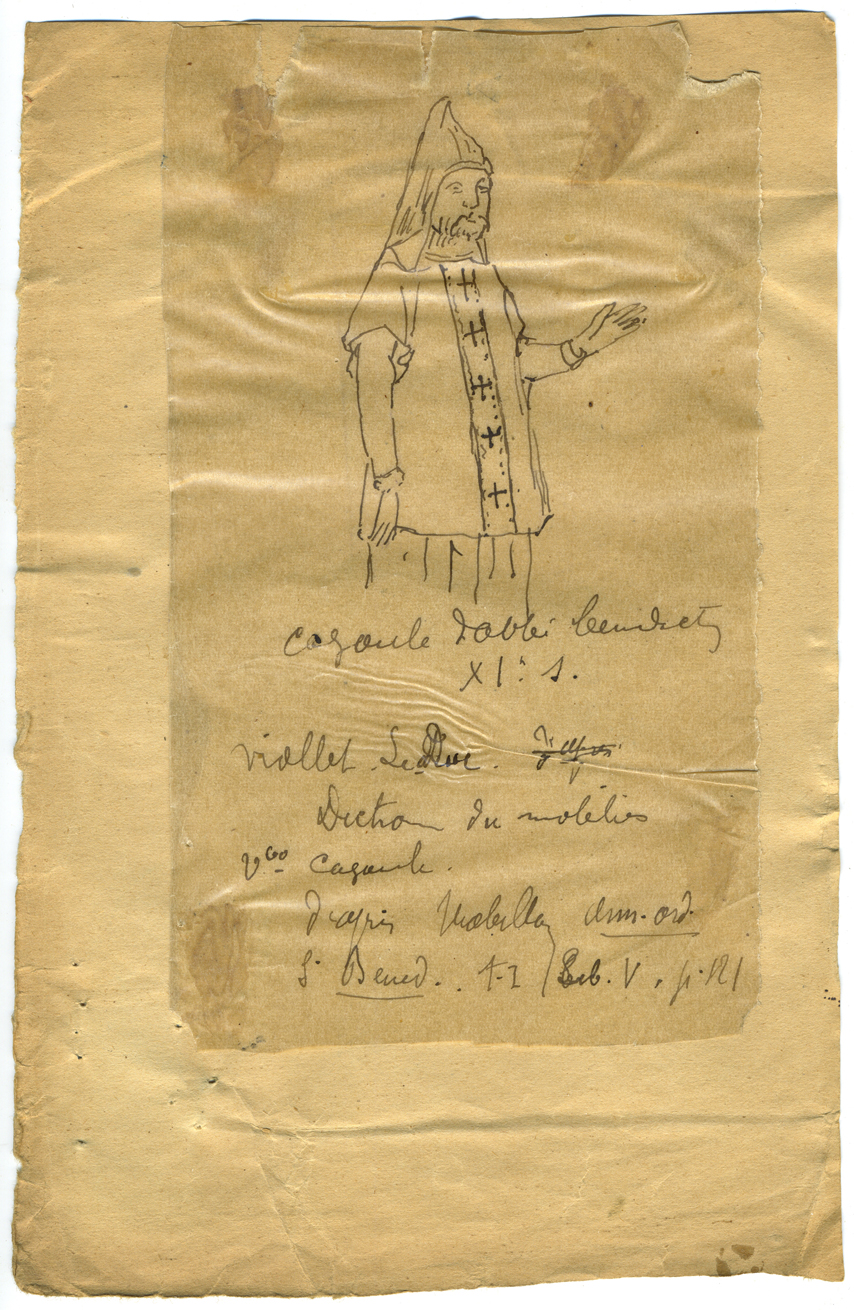 cagoule d'abbé bénédict
XIe s.
Viollet Le Duc. d'après
Diction du mobilier
Vo cagoule.
d'après Mabillon Ann. ord.
St Bened. t. I Lib. V, p. 121